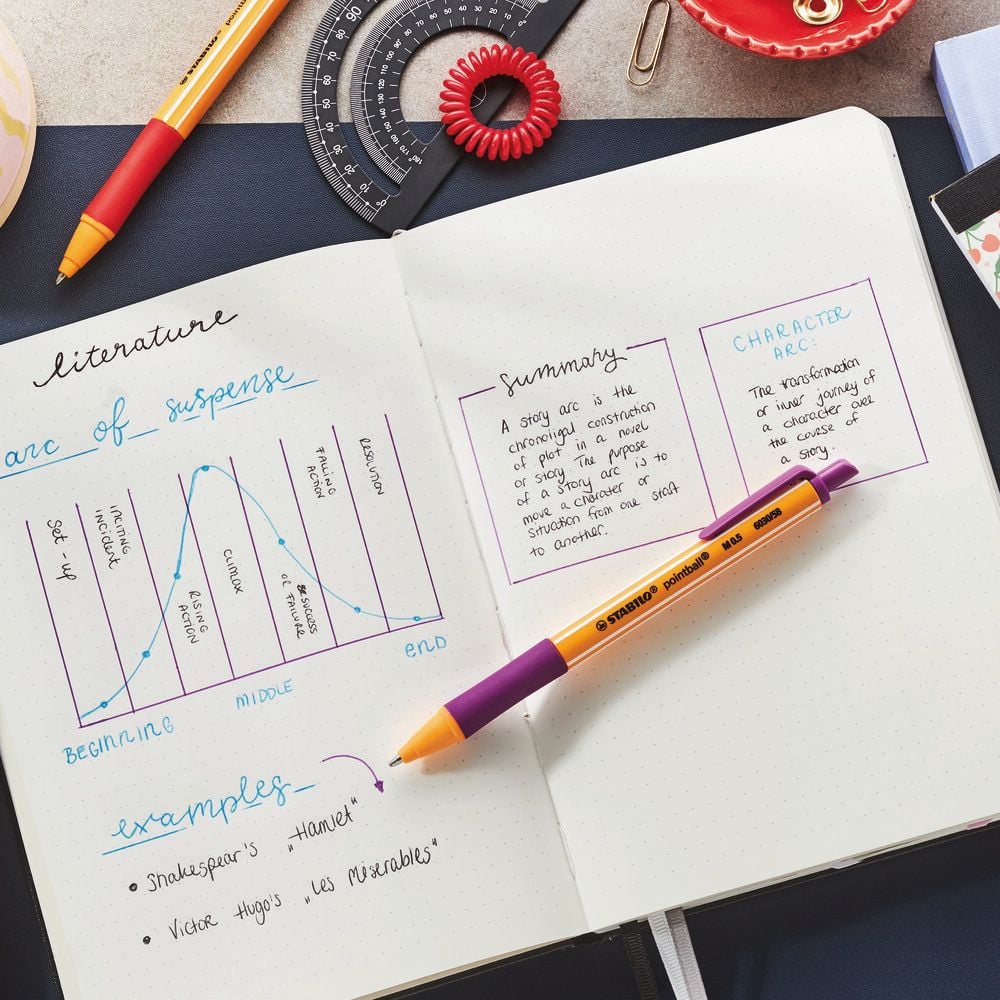 STABILO® poin
90
80
70
60
50
40
30
20
10
0
0°
10
20
30
40
50
60
70
80
90
100
110
120
130
140
150
160
170
180°
literature
arc of suspense
Set-up
INCITING
Incident
RISING
ACTION
CLIMAX
SUCCESS
OR FAILURE
FALLING
ACTION
RESOLUTION
BEGINNING
MIDDLE
END
examples
• Shakespear's „Hamlet"
• Victor Hugo's „Les Miserables"
summary
A story arc is the
chronoligal construction
of plot in a novel
or story. The purpose
of a story arc is to
move a charater or
situation from one staff
to another.
CHARACTER
ARC:
The transformation
or inner journey of
a character over
the course of
a story.
STABILO® pointball® M 0.5 6030/58